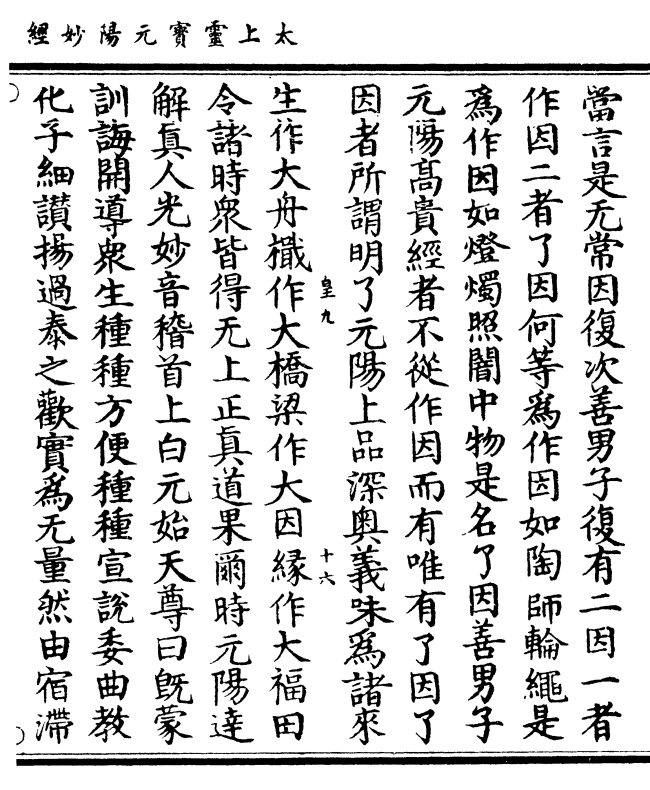 太上靈寶元陽妙經
當言是无常因復次善男子復有二因一者
作因二者了因何等爲作因如陶師輪繩是
爲作因如燈燭照闇中物是名了因善男子
元陽高貴經者不從作因而有唯有了因了
因者所謂明了元陽上品深奧義味爲諸來
皇九
十六
生作大舟檝作大橋梁作大因緣作大福田
令諸時衆皆得无上正真道果爾時元陽達
解真人光妙音稽首上白元始天尊曰旣蒙
訓誨開導衆生種種方便種種宣說委曲教
化子細讃揚過泰之歡實爲无量然由宿滯